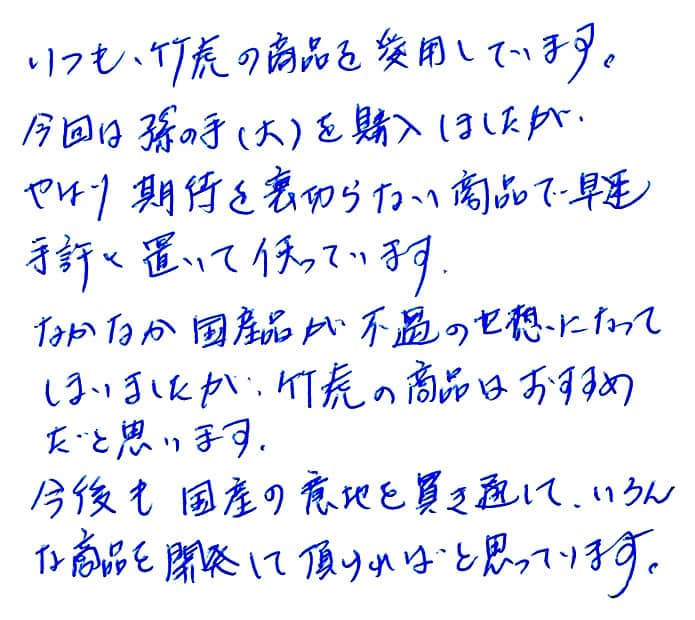 いつも、竹虎の商品を愛用しています。
今回は孫の手(大)を購入しましたが、
やはり期待を裏切らない商品で早速
手許に置いて使っています.
なかなか国産品が不遇の世想になって
しまいましたが、竹虎の商品はおすすめ
だと思います.
今後も国産の意地を貫き通して、いろん
な商品を開発して頂ければと思っています。